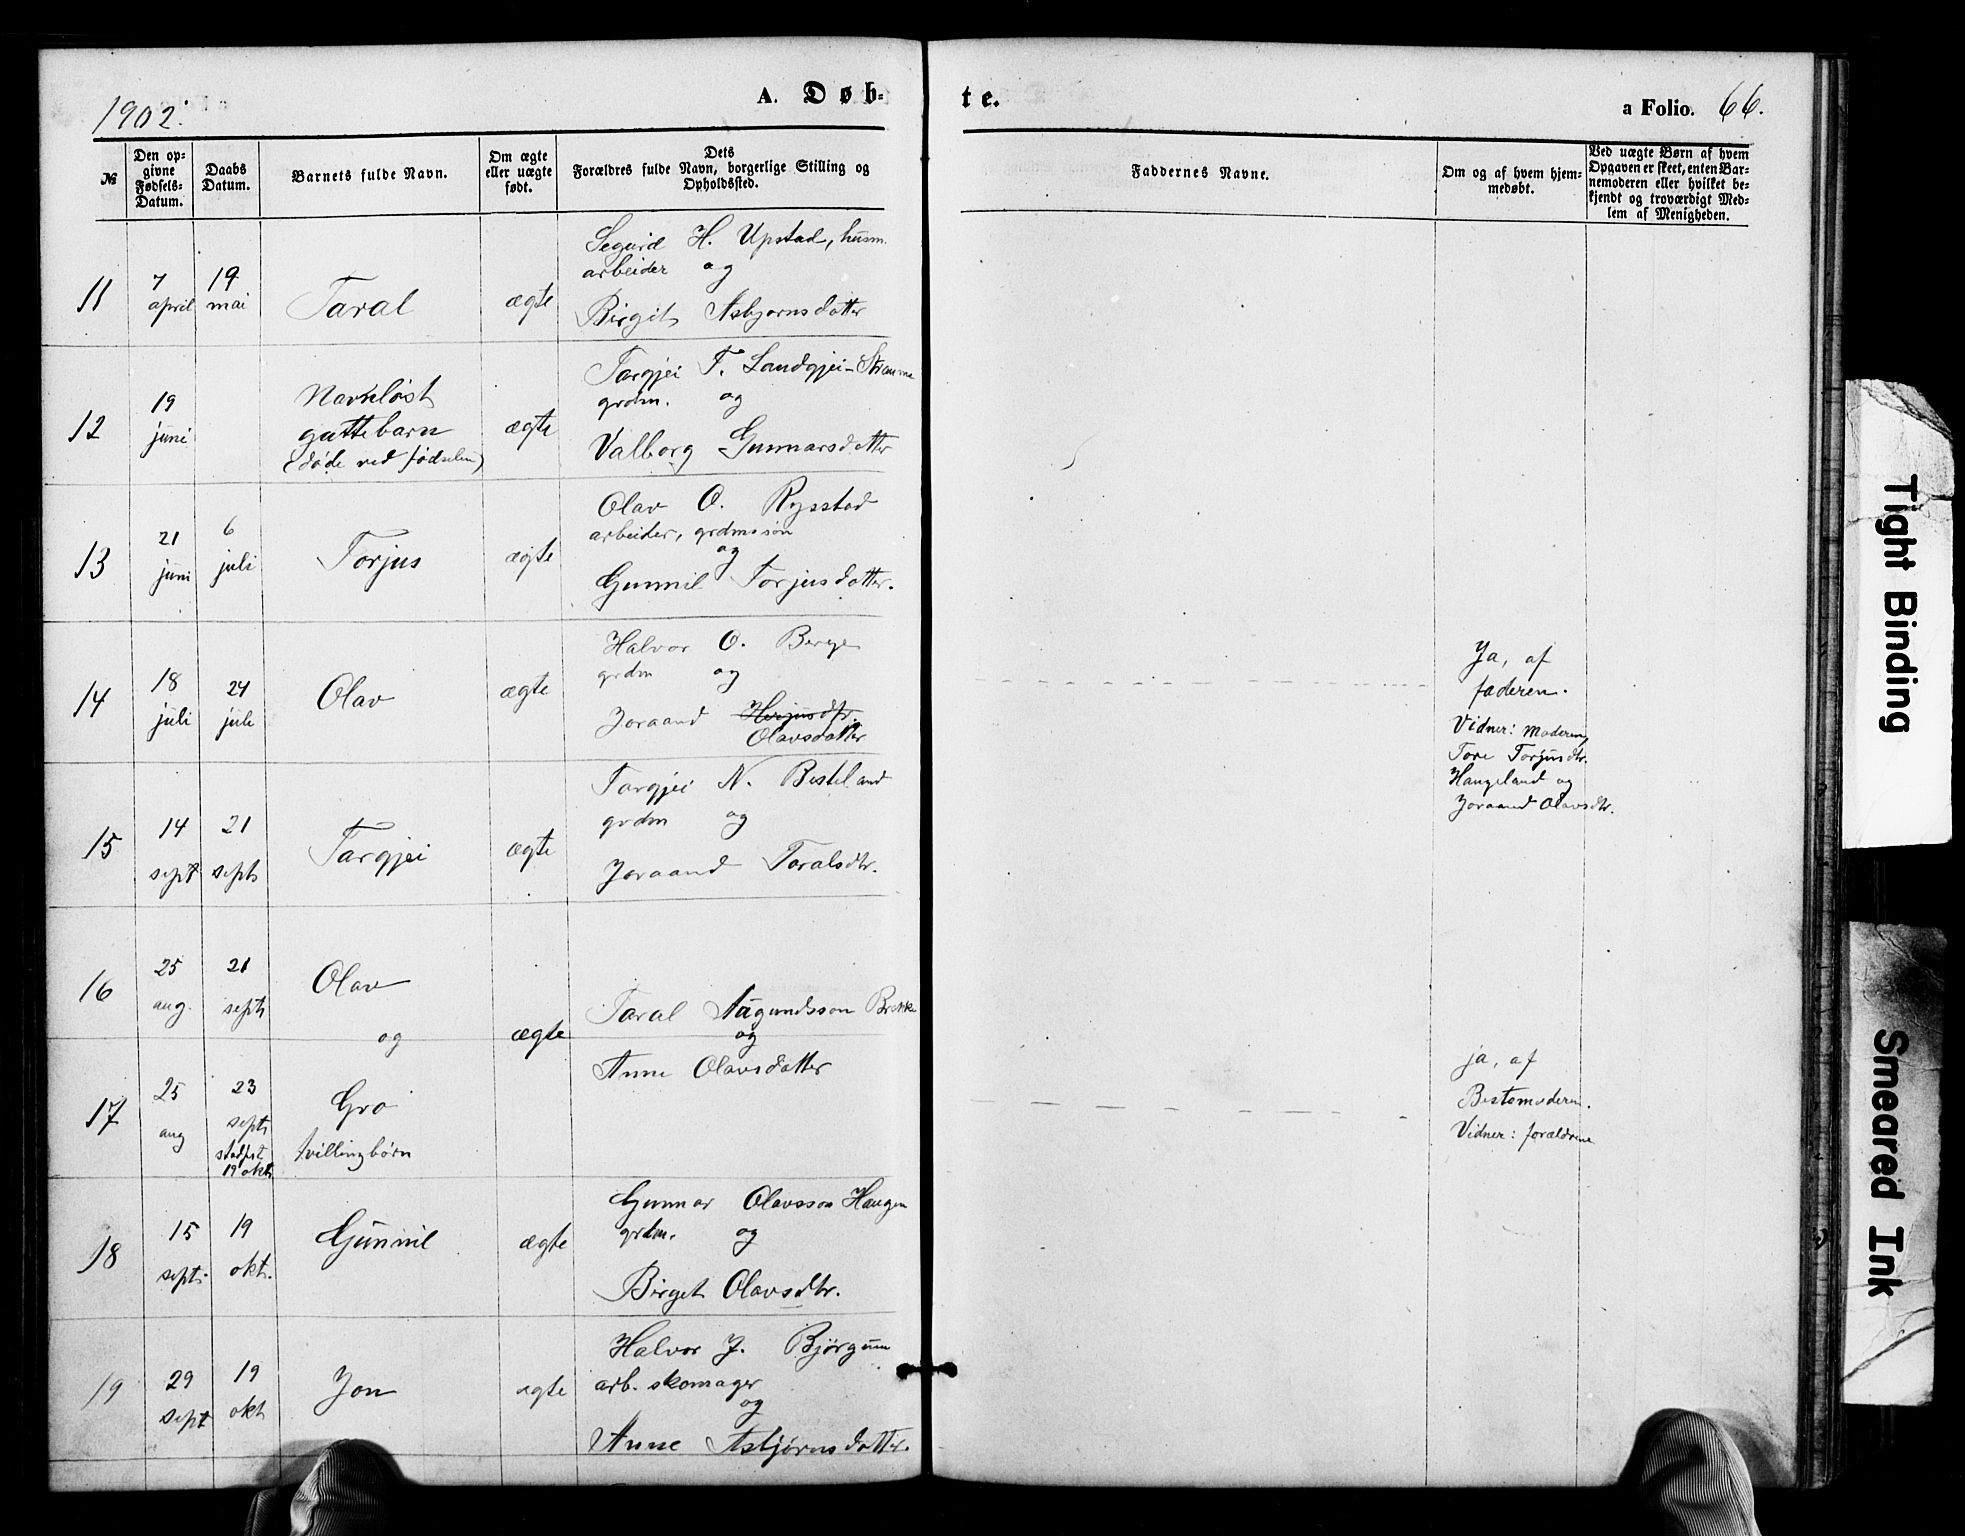 1902.
A. Døb-
te.
a Folio. 66.
№
Den op-
givne
Fødsels-
Datum.
Daabs
Datum.
Barnets fulde Navn.
Om ægte
eller uægte
født.
Dets
Forældres fulde Navn, borgerlige Stilling og
Opholdssted.
Faddernes Navne.
Om og af hvem hjem-
medøbt.
Ved uægte Børn af hvem
Opgaven er skeet, enten Bar-
nemoderen eller hvilket be-
kjendt og troværdigt Med-
lem af Menigheden.
11
7
april
19
mai
Taral
ægte
Segurd H. Upstad, husm.
arbeider og
Birgit Asbjornsdatter
12
19
juni
Navnløst
guttebarn
(døde ved fødselen)
ægte
Targjei T. Landgjei-
grdm. og
Valborg Gunnarsdatter
13
21
juni
6
juli
Torjus
ægte
Olav O. Rysstad
arbeider, grdmssøn
og
Gunnil Torjusdatter.
14
18
juli
24
juli
Olav
ægte
Halvor O. Berge
grdm og
Joraand
Olavsdatter
Ja, af
faderen.
Vidner: Moderen,
Tore Torjusdtr.
Haugeland og
Joraand Olavsdtr.
15
14
sept
21
sept
Targjei
ægte
Targjei N. Besteland
grdm og
Joraand Taralsdtr.
16
25
aug.
21
sept
Olav
og
ægte
Taral Aagundsson Brokke
og
Anne Olavsdatter
17
25
aug
23
sept
stadfst.
19 okt.
Gro
tvillingbørn
ja, af
Bestemoderen.
Vidner: forældrene
18
15
sept.
19
okt.
Gunnil
ægte
Gunnar Olavsson Haugen
grdm. og
Birget Olavsdtr.
19
29
sept
19
okt
Jon
ægte
Halvor J. Bjørgum
arb. skomager
og
Anne Asbjørnsdatter.
Tight Binding
Smeared Ink